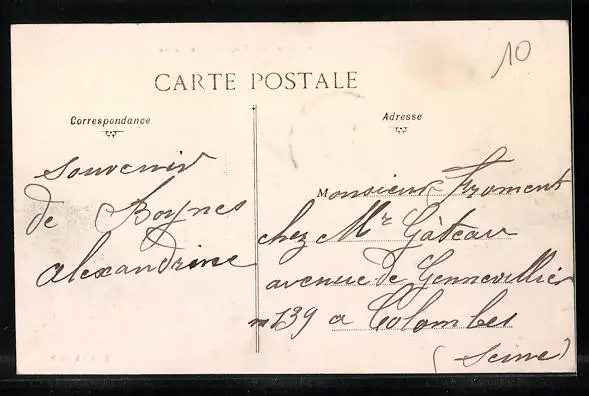 10
CARTE POSTALE
Correspondance
Adresse
Souvenir
de Boynes
Alexandrine
Monsieur Froment
chez Mr Gâteau
avenue de Gennevillier
n 139 a Colombes
(Seine)